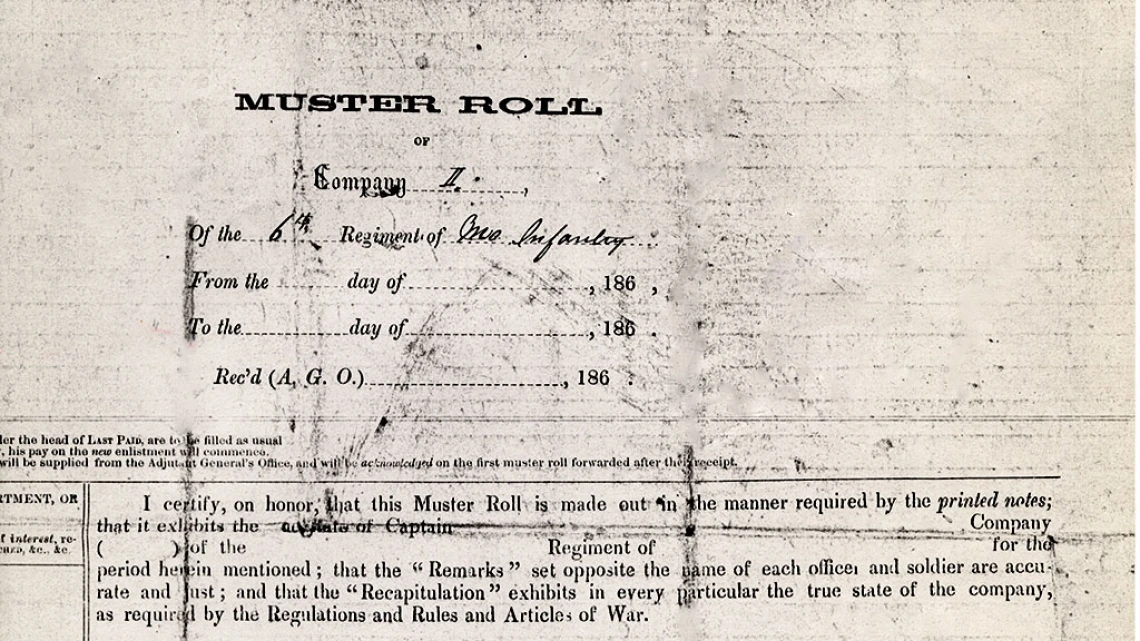 MUSTER ROLL
OF
Company I.,
Of the 6th Regiment of Mo Infantry
From the day of , 186 ,
To the day of , 186 .
Rec'd (A. G. O.) , 186 .
der the head of LAST PAID, are to be filled as usual
, his pay on the new enlistment will commence.
will be supplied from the Adjutant General's Office, and will be acknowledged on the first muster roll forwarded after their receipt.
RTMENT, OR
t interest, re-
&c., &c.
I certify, on honor, that this Muster Roll is made out in the manner required by the printed notes;
that it exhibits the state of Captain Company
( ) of the Regiment of for the
period herein mentioned; that the "Remarks" set opposite the name of each officer and soldier are accu-
rate and just; and that the "Recapitulation" exhibits in every particular the true state of the company,
as required by the Regulations and Rules and Articles of War.